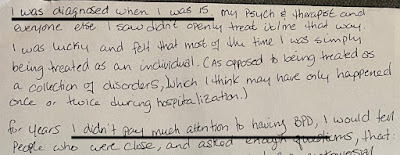 I was diagnosed when I was 15 my psych & therapist and
everyone else I saw didn't openly treat it/me that way.
I was lucky and felt that most of the time I was simply
being treated as an individual. (As opposed to being treated as
a collection of disorders, which I think may have only happened
once or twice during hospitalization.)
for years I didn't pay much attention to having BPD, I would tell
people who were close, and asked enough questions, that: